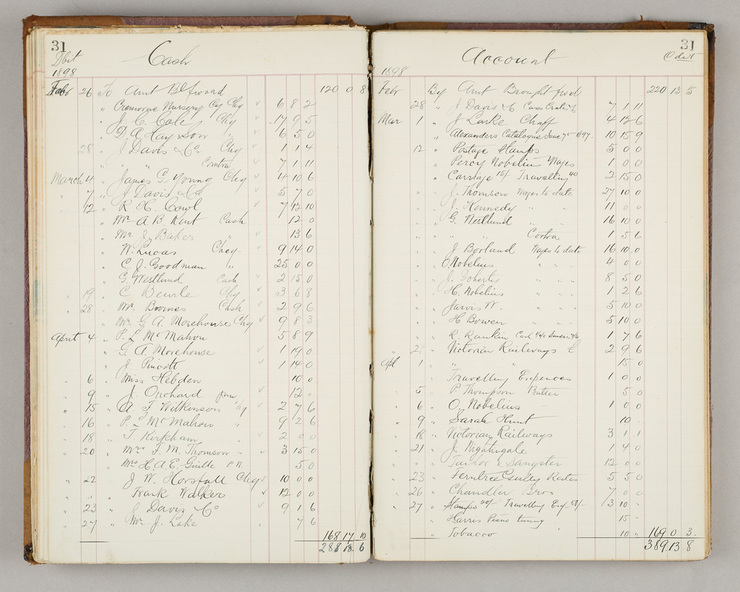 31
Debit
Cash
1898
Feb 26 To Amt Bt forward 120 0 8
" Cremorne Nursery Coy Chq 6 8 2
" J. C. Cole Chq 17 9 5
" G. A. Hay & Son " 6 5 0
28 " J Davis & Co Chq 1 1 4
" " Contra 7 1 11
March 4 " James G. Young Chq 4 10 6
" 7 " J Davis & Co 5 7 0
" 12 " R H Cowl 7 12 10
" Mr A B Kent Cash 12 0
" Mr J Baker " 13 6
" W. Lucas Cheq 9 14 0
" C. J. Goodman " 25 0 0
" G. Westlund Cash 2 15 0
" 19 " C Deurle Chq 3 6 8
" 28 " Mr Broones Cash 2 9 6
" Mr G. A. Morehouse Chq 9 8 3
April 4 " P. L. McMahon 5 8 9
" G A Morehouse 1 19 0
" J Pincott 1 14 0
" 6 " Miss Hebden 10 0
" 9 " J. Orchard 12
" 15 " A J Wilkinson 2 7 6
" 16 " P L McMahon " 9 2 6
" 18 " T Kirkham 2 0 0
" 20 " Mrs F. M. Thomson 3 15 0
" Mrs H. A. E. P.N. 5 0
" 22 " J W. Horsfall Cheq 10 0 0
" " Frank Walker 12 0 0
" 23 " J Davis & Co 9 1 6
" 27 " Mr J. Lake " 7 6
168 17 10
288 18 6
31
Account
Credit
1898
Feb By Amt Brought forwd 220 13 5
28 " J Davis & C 7 1 11
Mar 1 " J Locke Chaff 4 12 6
" Alexanders Catalogue 10 15 9
12 " Postage Stamps 5 0 0
" Percy Nobelius Wages 1 0 0
" Carriage Travelling 2 15 0
" J. Thomson Wages to date 27 10 0
" J. Kennedy " 11 0 0
" G. Westlund " 16 10 0
" " Contra 1 5 6
" J Borland Wages to date 16 10 0
" C Nobelius " " 4 0 0
" J Roberts " " 8 5 0
" H. Nobelius " " 1 2 6
" Jarvis W. " " 5 10 0
" H Bowen " " 5 10 0
" R. Rankin 1 7 6
" 2 " Victorian Railways 2 9 6
Apl 1 " " 15 0
" Travelling Expences 1 0 0
" 5 " P Thompson Butter 5 0
" 6 " O. Nobelius 1 0 0
" 9 " Sarah Hunt 10
" 18 " Victorian Railways 3 1 1
" 21 " J. Nightingale 1 4 0
" " Sangster 12 0 0
" 23 " Ferntree Gulley Rates 5 5 0
" 26 " Chandler Bros 7 0 0
" 27 " Stamps Travelling 3 10
" Harris Piano tuning 15
" Tobacco " 10
169 0 3
389 13 8